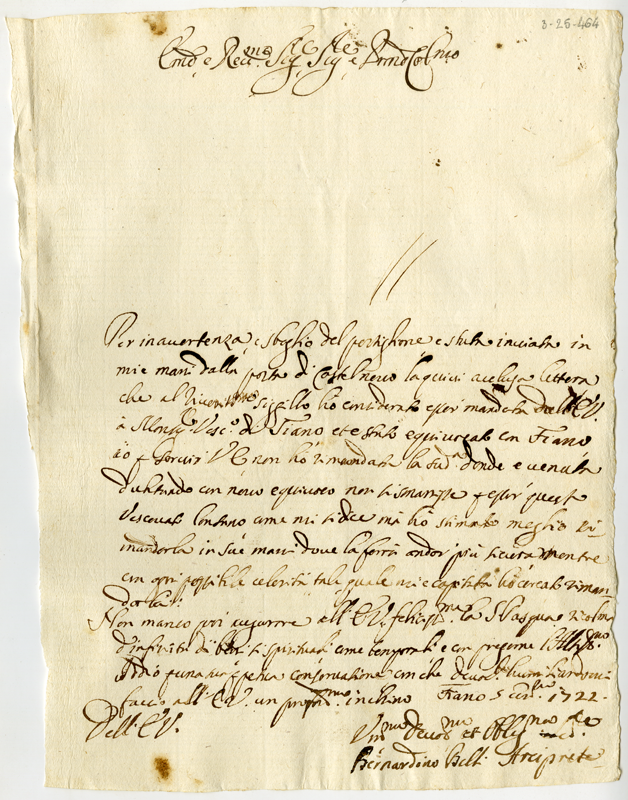 3-26-464
Em.o e Rev.mo Sig.re Sig.re e P.rone Col.mo
Per inavertenza, e sbaglio del postiglione e stata inviata in
mie mani dalla posta di Castelnovo la quivi acclusa lettera
che al sigillo ho considerato esser mandata dall'E.V.
à Monsig.r Vesc.o di Tiano, et è stato equivocato con Fiano
io p servir V E non ho rimandata la sud.a donde e venuta
dubitando con novo equivoco non si smarisse p esser questo
Vescovato lontano come mi si dice mà ho stimato meglio ri=
mandarla in sue mani dove la farrà andar più sicura mentre
con ogni possibile celerità tale quale mi e capitata hò cercato riman
darla.
Non manco poi augurare all'E.V. feliciss.ma la S. Pasqua ricolma
d'infinità di beni si spirituali come temporali e con pregarne l'Altiss.mo
Iddio p una sua perpetua conservatione con che
faccio all'E.V. un prof.mo inchino Fiano 5 1722
Dell'E.V.
Um.mo Devot.mo et Obblig.mo
Bernardino Belli Arciprete